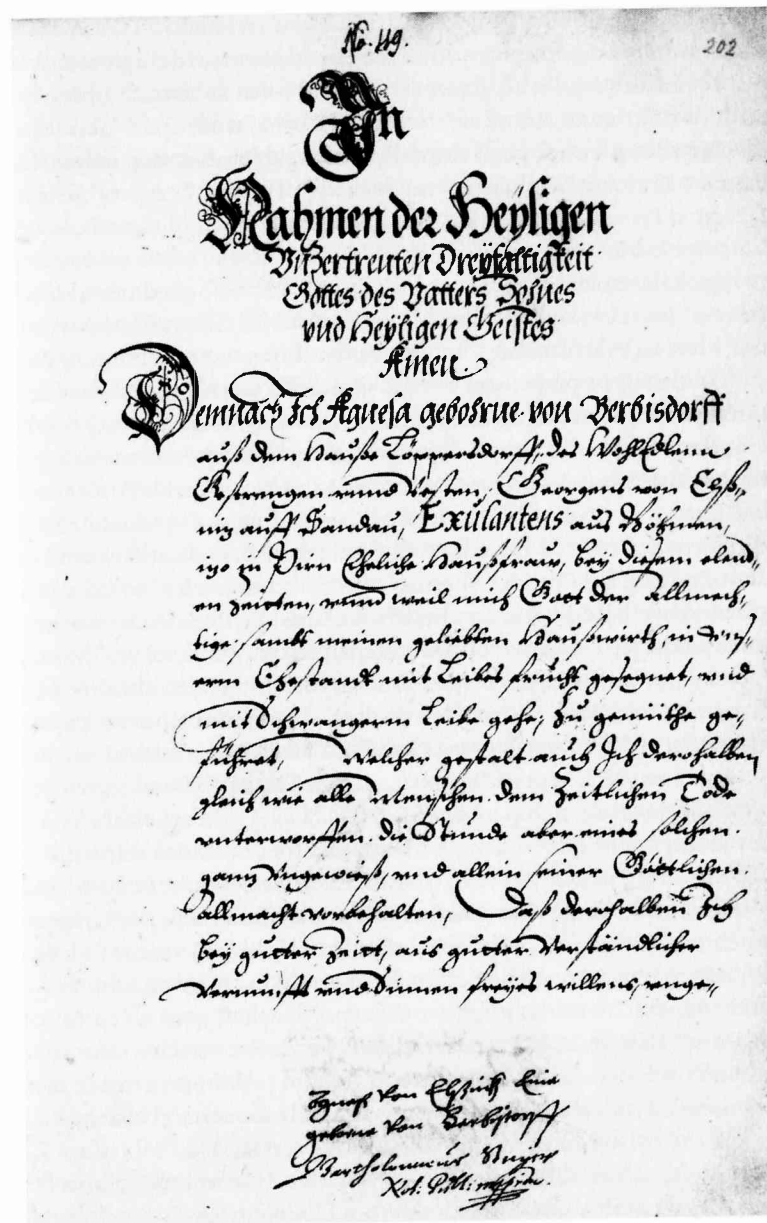 No: 119.
202
In
Nahmen der Heyligen
Vnzertrenten Dreyfaltigkeit
Gottes des Vatters Sohnes
vnd Heyligen Geistes
Amen.
Demnach Ich Agnesa gebohrne von Berbisdorff
auß dem Hauße Löppersdorff, des WohlEdlenn
Gestrengen vnnd Vesten, Georgens von Elß„
niz auff Sandau, Exulantens aus Böhmen,
izo zu Pirn Eheliche Haußfraw, bey diesem elend„
en Zeitten, vnnd weil mich Gott der allmech„
tige sambt meinen geliebten Haußwirth, in vns„
erm Ehestandt mit Leibes frucht gesegnet, vnd
mit Schwangerm Leibe gehe, Zu gemüthe ge„
führet, welcher gestalt auch Ich derohalben
gleich wie alle Menschen dem Zeitlichen Tode
vnterworffen, die Stunde aber eines solchen
ganz vngewieß, vnd allein seiner Göttlichen
Allmacht vorbehalten, Daß derohalben Ich
bey gutter Zeitt, aus gutter Verständlicher
Vernunfft vnnd Sinnen freyes willens, vnge„
Agnes von Elsnitz Eine
geborne von Berbisdorff
Bartholomaeus
Not. Publicus